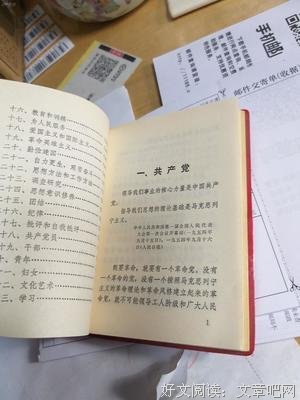 十六、教育和训练
十七、为人民服务
十八、爱国主义和国际主义
十九、革命英雄主义
二十、勤俭建国
十一、自力更生，艰苦奋斗
十二、思想方法和工作方法
十三、调查研究
十四、思想意识修养
十五、团结
十六、纪律
十七、批评和自我批评
十八、共产党员
十九、干部
十、青年
十一、妇女
十二、文化艺术
十三、学习
一、共产党
领导我们事业的核心力量是中国共产
党。
指导我们思想的理论基础是马克思列
宁主义。
中华人民共和国第一届全国人民代表
大会第一次会议开幕词（一九五四
年九月十五日），一九五四年九月十六
日《人民日报》
既要革命，就要有一个革命党。没有
一个革命的党，没有一个按照马克思列宁
主义的革命理论和革命风格建立起来的革
命党，就不可能领导工人阶级和广大人民
1
手机邮
邮件交寄单(收据)
好文阅读：文章吧网